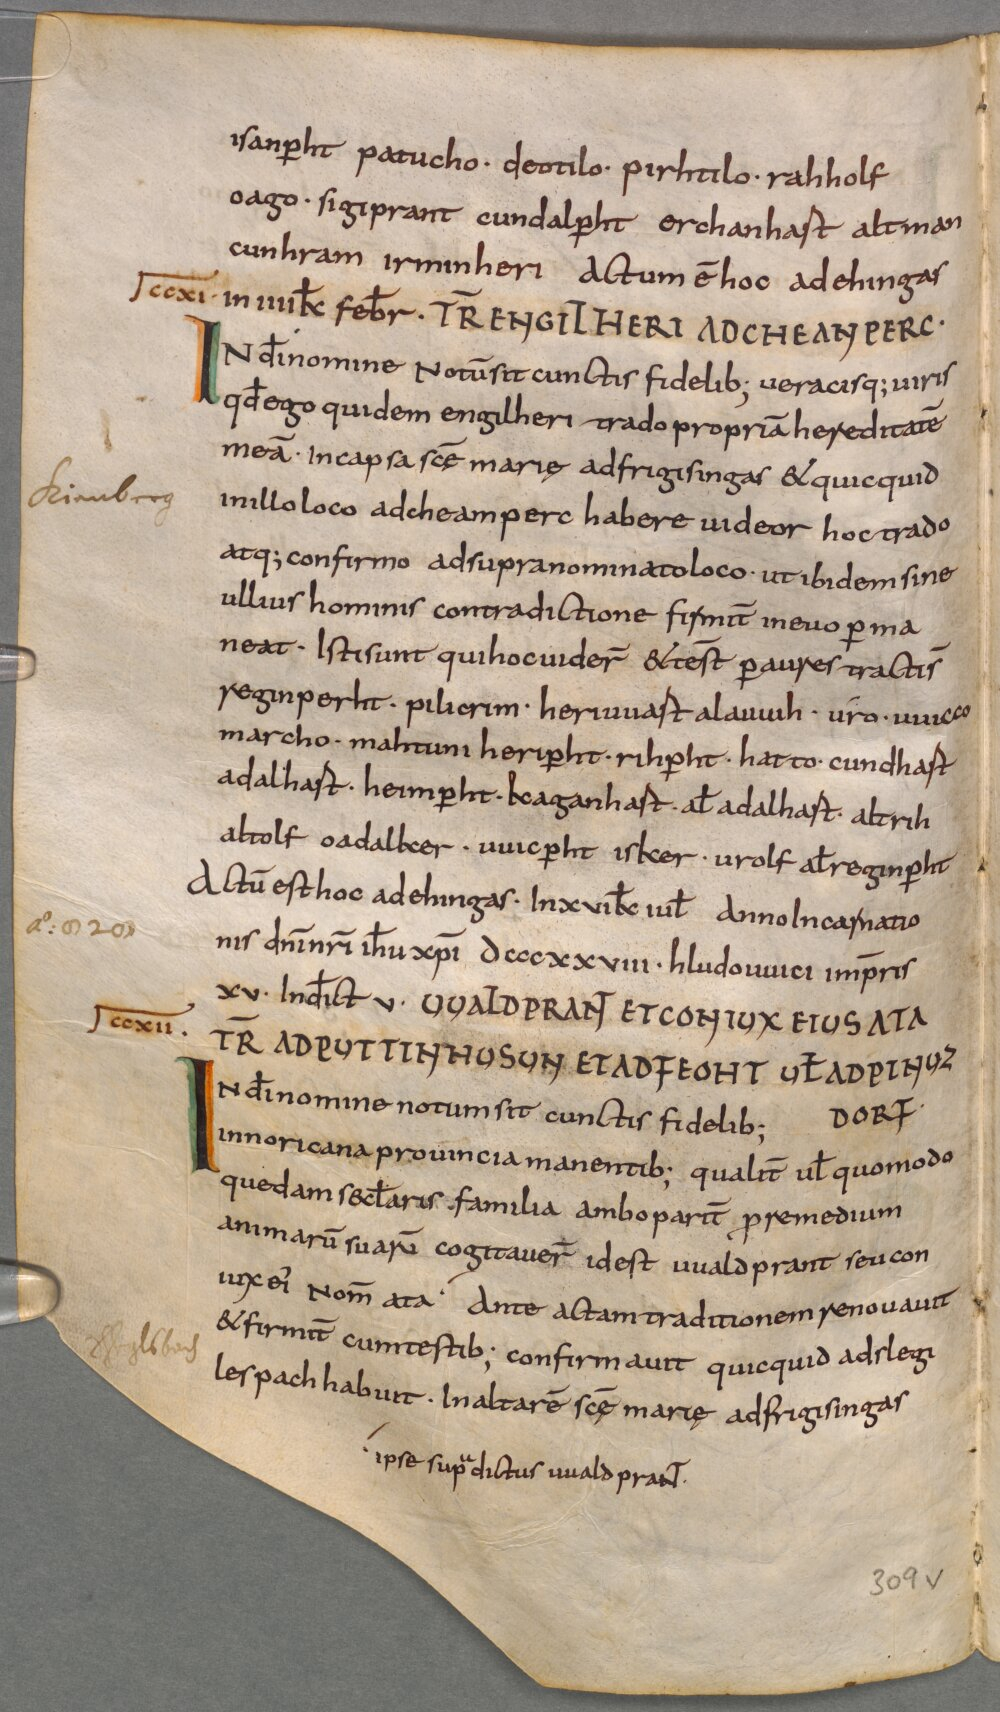 isanp̄ht patucho · deotilo · pirhtilo · rahholf
oago · sigiprant cundalp̄ht erchanhast altman
cunhram irminheri Actum ē hoc ad ehingas
ccxi · in iiii kł febr̄ · TR̄ ENGILHERI AD CHEANPERC ·
IN dī nomine Notū sit cunctis fidelib; ueracisq; uiris
qđ ego quidem engilheri trado propriā hereditatē
meā · In capsa scę̄ marię ad frigisingas & quicquid
Kirnberg
in illo loco ad cheamperc habere uideor hoc trado
atq; confirmo ad supranominato loco · ut ibidem sine
ullius hominis contradictione firmit̄ in euo p̄ ma
neat · Isti sunt qui hoc uider̄ & test̄ p̄ aures tractis̄
reginperht · pilicrim · heriuuast alauuih · uro · uuicco
marcho · mahtuni herip̄ht · rihp̄ht · hatto · cundhast
adalhast · heimp̄ht · kaganhast · ał adalhast · altrih
altolf oadalker · uuicp̄ht isker · urolf ał reginp̄ht
Actū est hoc ad ehingas · In xvi kł iuł Anno Incarnatio
aº: 828
nis dn̄i nr̄i ih̄u xp̄i dcccxxviii · hludouuici imp̄ris
xv · Indict̄ v · UUALDPRANT ET CONIUX EIUS ATA
ccxii ·
TR̄ AD PUTTINHUSUN ET AD FEOHT UŁ AD PINUZ
DORF ·
IN dī nomine notum sit cunctis fidelib;
in noricana prouincia manentib; qualit̄ uł quomodo
quedam secłaris familia ambo parit̄ p̄ remedium
animarū suarū cogitauer̄ id est uualdprant seu con
iux ei' Nom̄ ata · Ante actam traditionem renouauit
& firmit̄ cum testib; confirmauit quicquid ad slegi
lespach habuit · In altarē scę̄ marię ad frigisingas
· ipse supradictus uualdprant ·
309 v